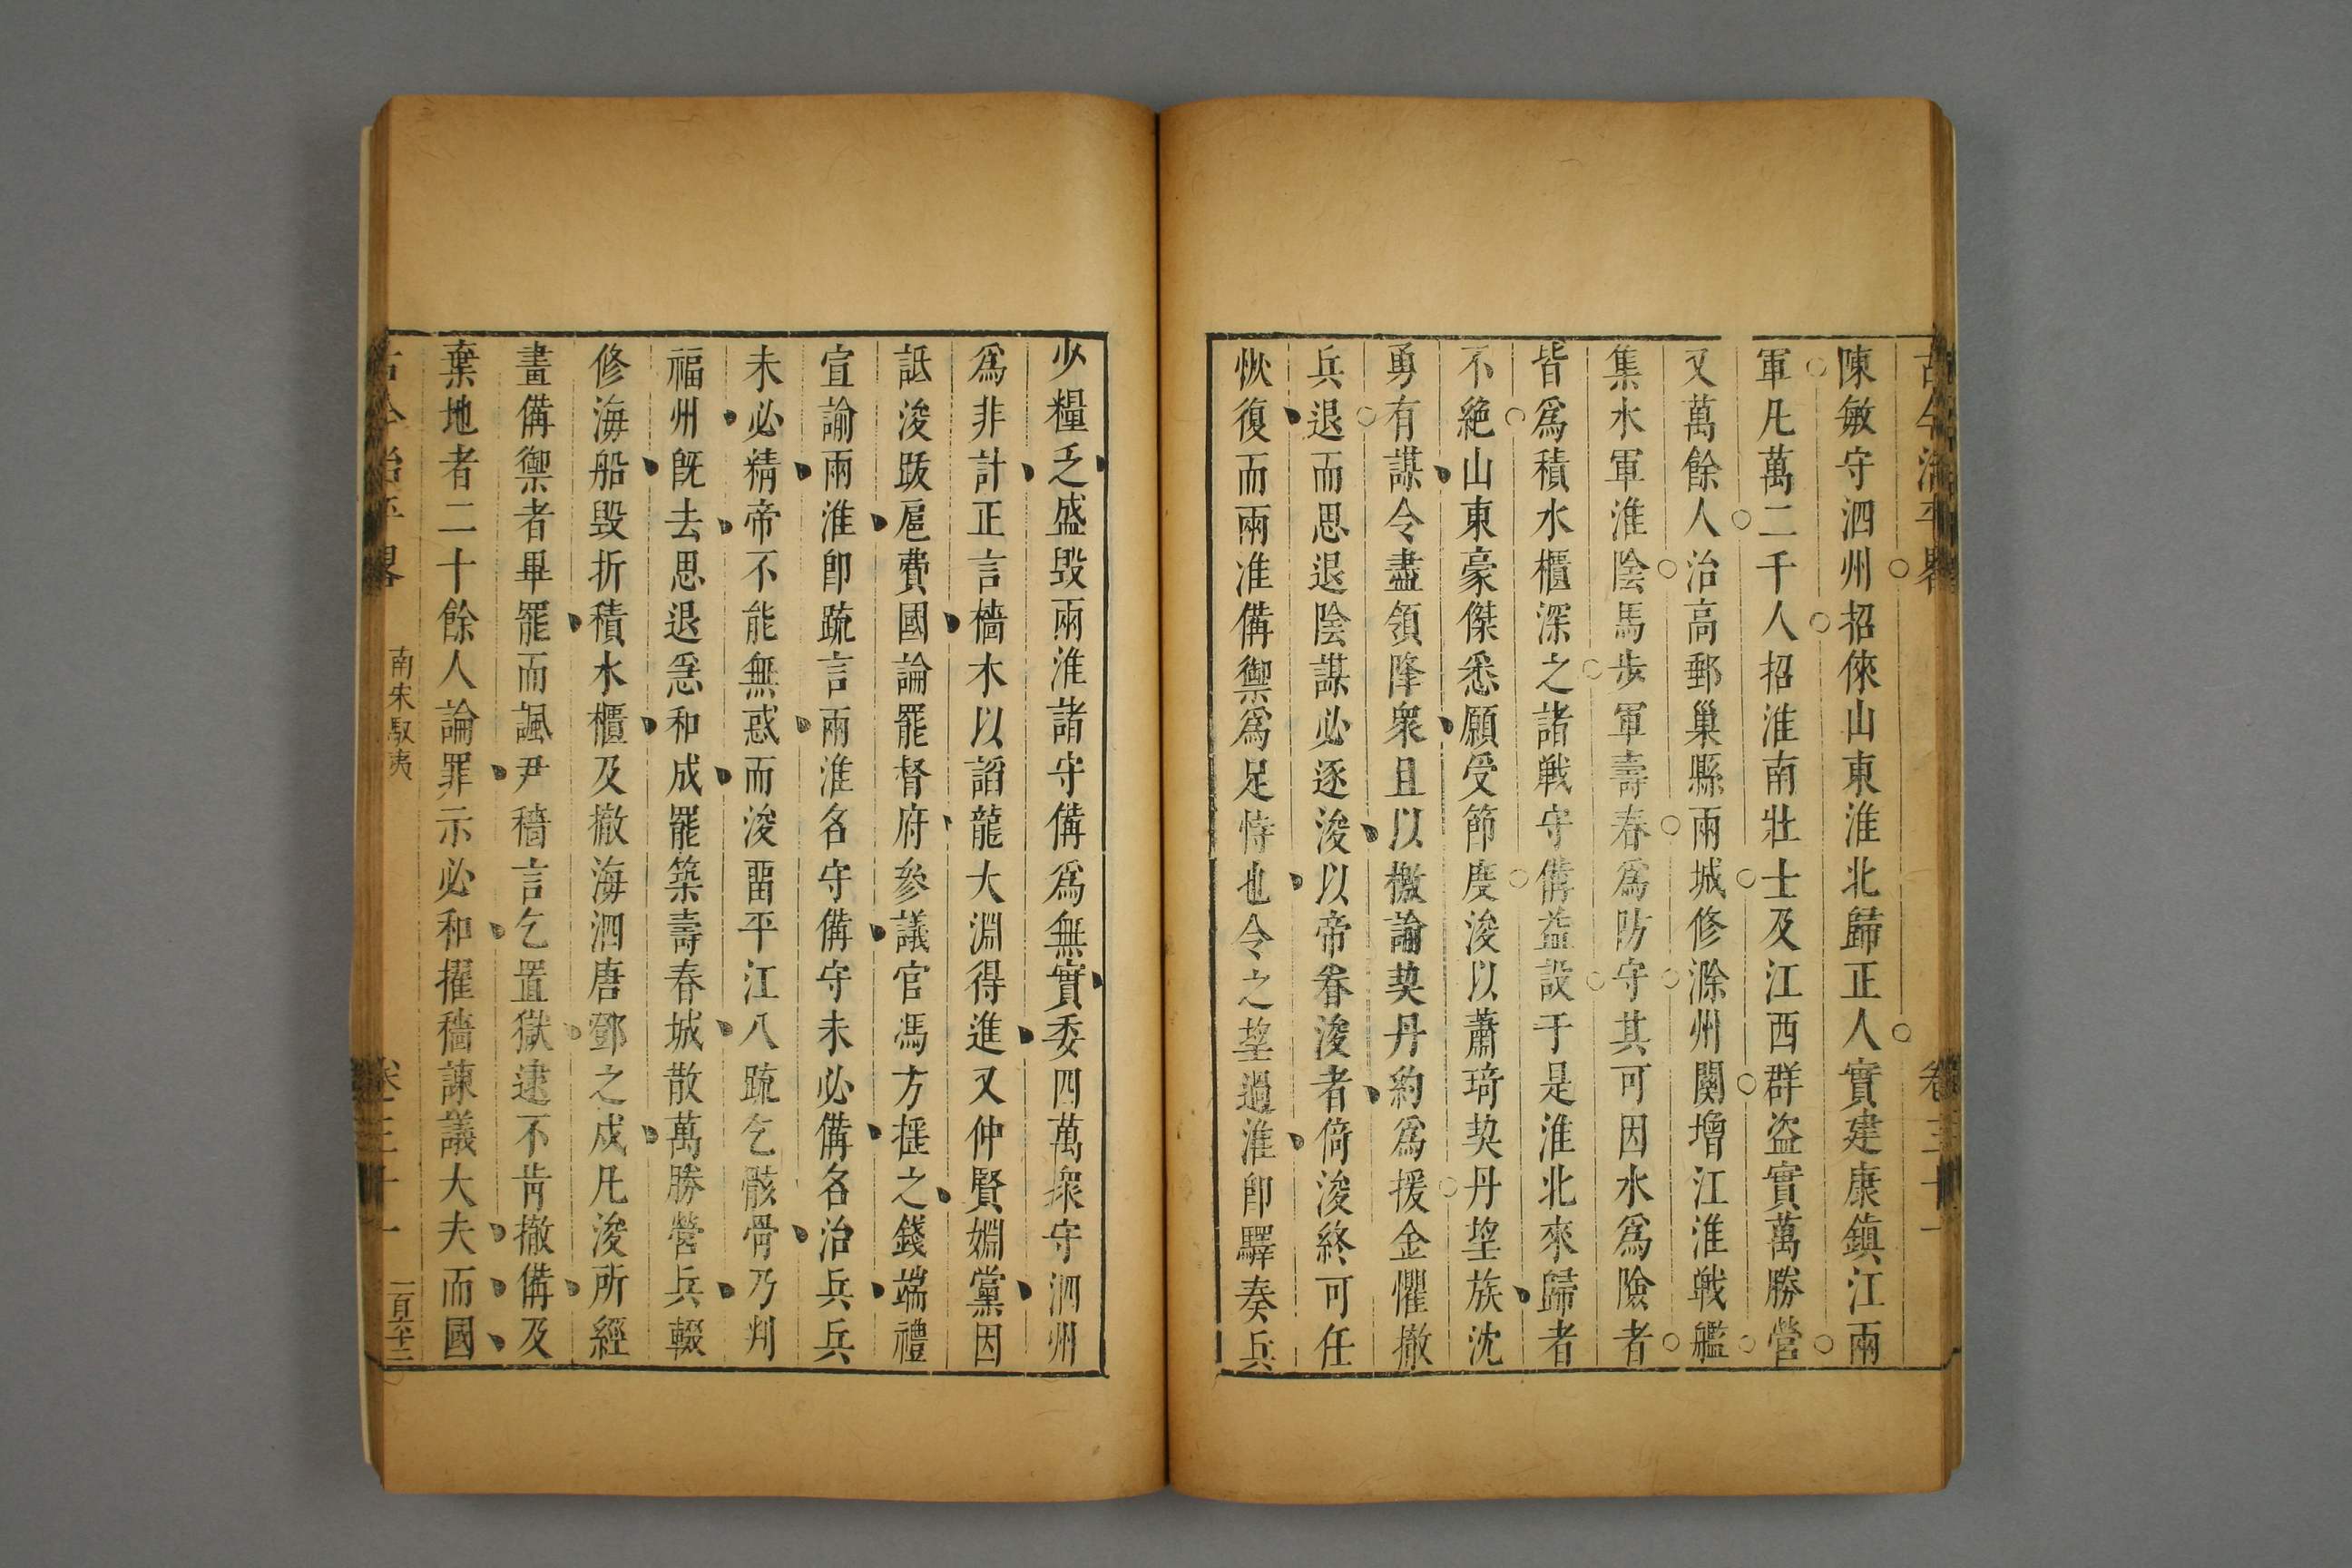 古今治平畧 卷三十一
陳敏守泗州招徠山東淮北歸正人實建康鎮江兩
軍凡萬二千人招淮南壯士及江西群盜實萬勝營
又萬餘人治高郵巢縣兩城修滁州關增江淮戰艦
集水軍淮陰馬步軍壽春爲防守其可因水爲險者
皆爲積水櫃深之諸戰守備益設于是淮北來歸者
不絕山東豪傑悉願受節度浚以蕭琦契丹望族沈
勇有謀令盡領降衆且以檄諭契丹約爲援金懼撤
兵退而思退陰謀必逐浚以帝眷浚者倚浚終可任
恢復而兩淮備禦爲足恃也令之望過淮卽驛奏兵
少糧乏盛毀兩淮諸守備爲無實委四萬衆守泗州
爲非計正言檣木以謟龍大淵得進又仲賢婣黨因
詆浚跋扈費國論罷督府參議官馮方搉之錢端禮
宣諭兩淮卽疏言兩淮名守備守未必備名治兵兵
未必精帝不能無惑而浚畱平江八疏乞骸骨乃判
福州旣去思退惡和成罷築壽春城散萬勝營兵輟
修海船毀折積水櫃及撤海泗唐鄧之戍凡浚所經
畫備禦者畢罷而諷尹穡言乞置獄逮不肯撤備及
棄地者二十餘人論罪示必和擢穡諫議大夫而國
古今治平畧 南宋馭夷 卷三十一 一百六十三